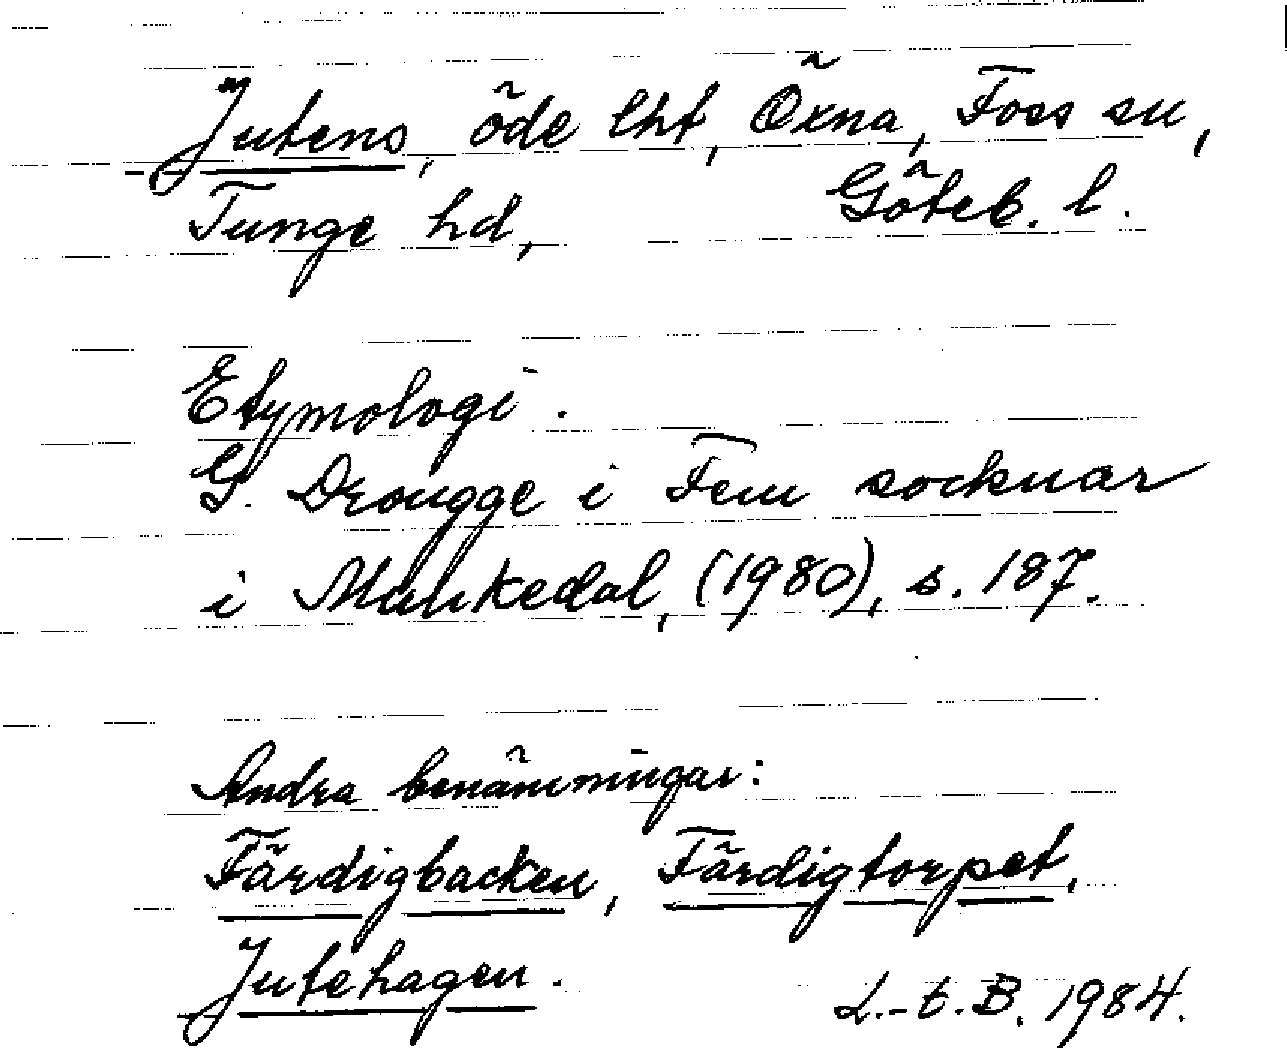 Jutens, öde lht, Öxna, Foss sn,
Tunge hd, Göteb. l.
Etymologi.
G. Drougge i Fem socknar
i Munkedal, (1980), s. 187.
Andra benämningar:
Färdigbacken, Färdigtorpet,
Jutehagen.
L.-t. B. 1984.